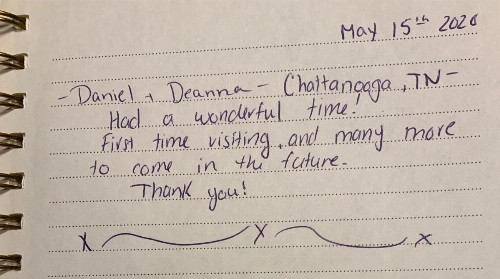 May 15th 2020
- Daniel + Deanna - Chattanooga, TN -
Had a wonderful time!
First time visiting, and many more
to come in the future.
Thank you!
X X X